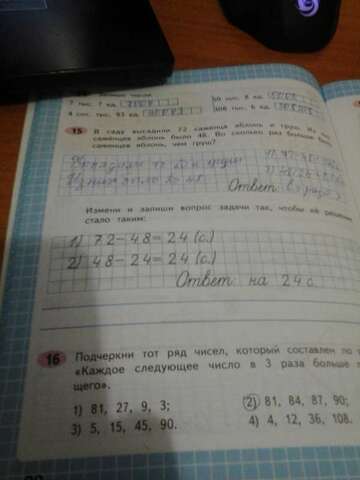 7 тыс. 7 ед.
50 тыс. 8 ед.
4 сот. тыс. 93 ед.
308 тыс. 6 ед.
15 В саду высадили 72 саженца яблонь и груш. Из них
саженцев яблонь было 48. Во сколько раз больше было
саженцев яблонь, чем груш?
Ответ: в 2 раза
Измени и запиши вопрос задачи так, чтобы её решение
стало таким:
1) 72-48=24 (с.)
2) 48-24=24 (с.)
Ответ: на 24 с.
16 Подчеркни тот ряд чисел, который составлен по
«Каждое следующее число в 3 раза больше
щего».
1) 81, 27, 9, 3;
2) 81, 84, 87, 90;
3) 5, 15, 45, 90.
4) 4, 12, 36, 108.